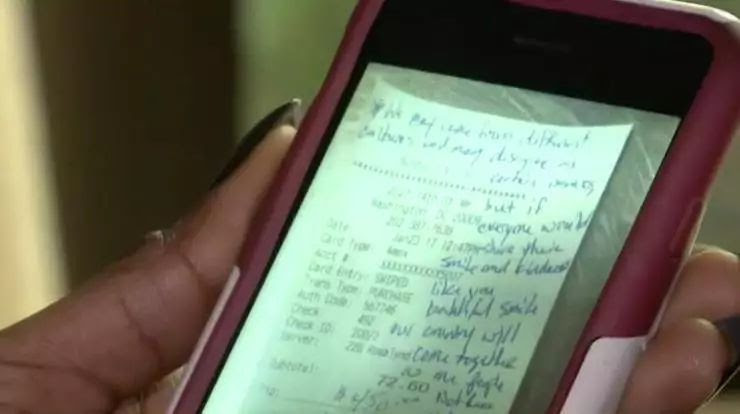 We may come from different
cultures and may disagree on
certain issues,
but if
Washington, DC 20009
everyone would
202 387-7638
share their
Date: Jan23'17 12:47PM
smile and kindness
Card Type: Amex
Acct #:
like you
Card Entry: SWIPED
beautiful smile
Trans Type: PURCHASE
our country will
Auth Code: 567746
come together
Check:
Check ID: 200/2
as one people
Server: 228 Rosalynd
Not
Subtotal: 72.60
$450